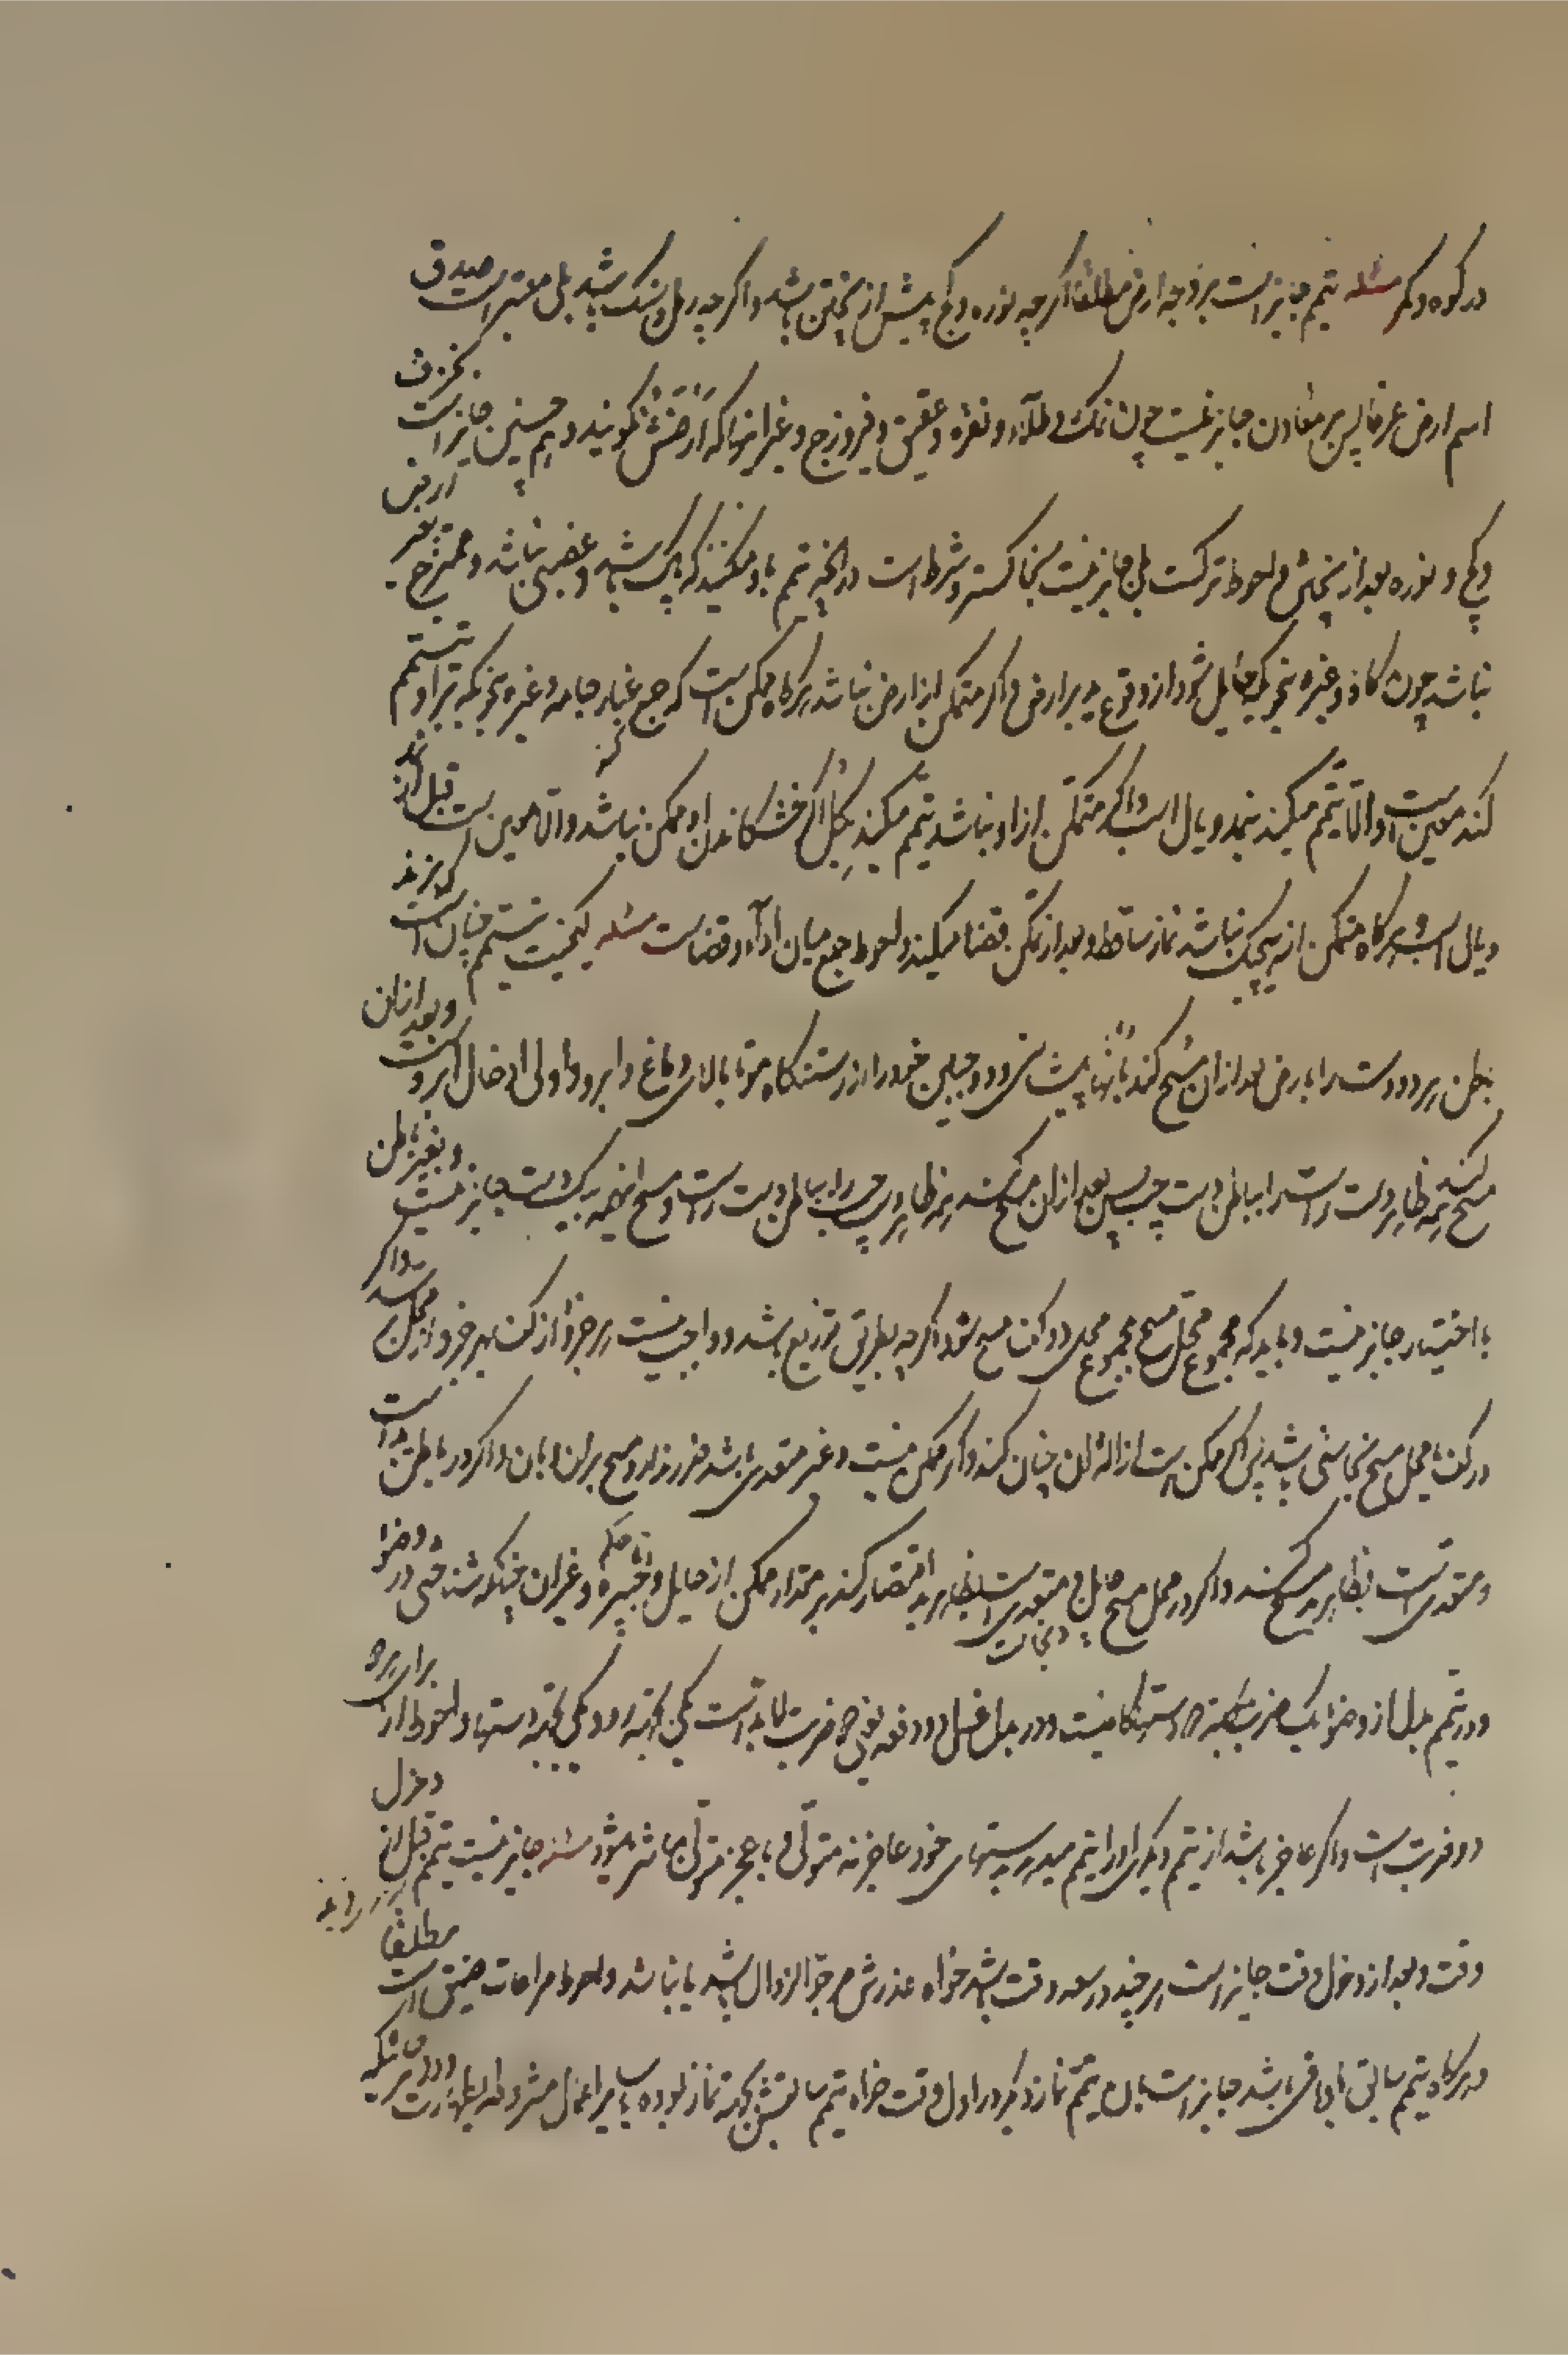 در کوه و کمر مسئله تیمم جایز است بر وجه ارض مطلقا اگرچه نوره و گچ پیش از پختن باشد و اگرچه رمل و سنک باشد بلی معتبر است صدق
اسم ارض عرفا پس بر معادن جایز نیست چون نمک و طلا و نقره و عقیق و فیروزج و غیر انها که ارضش نگویند و هم چنین جایز است بخزف
و گچ و نوره بعد از پختن و احوط ترکست بلی جایز نیست بخاکستر و شرط است در انچه تیمم باو میکنند که پاک باشد و غصبی نباشد و ممتزج بغیر ارض
نباشد چون کاه و غیره بنحوی که حایل شود از وقوع ید بر ارض و اگر متمکن از ارض نباشد هرگاه ممکن است که جمع غبار جامه و غیره بنحویکه بتراب تیمم
کند معین است و الا تیمم میکند بنمد و یال اسب و اگر متمکن از او نباشد تیمم میکند بگل اگر خشکاندن او ممکن نباشد و الا معین است قبل از نمد
و یال اسب و هرگاه متمکن از هیچیک نباشد نماز ساقط و بعد از تمکن قضا میکند و احوط جمع میان اداء و قضا است مسئله کیفیت تیمم چنان است که بزند
بطن هر دو دست را بارض بعد از ان مسح کند بانها پیشانی و دو جبین خود را از رستنگاه مو تا بالای دماغ و ابرو و اولی ادخال ابرو است و بعد از ان
مسح کند همه ظاهر دست راست را بباطن دست چپ پس بعد از ان مسح کند همه ظاهر دست چپ را بباطن دست راست و مسح اینها به یکدست جایز نیست و بغیر باطن
با اختیار جایز نیست و باید که مجموع محل مسح بمجموع دو کف مسح شود اگرچه بطریق توزیع باشد و واجب نیست هر جزو از کف بهر جزو از محل باشد و اگر
در کف یا محل مسح نجاستی باشد پس اگر ممکن است ازاله ان چنان کند و اگر ممکن نیست و غیر متعدی باشد ضرر ندارد مسح بر ان و بان و اگر در باطن ید است
و متعدی است بظاهر ید مسح کند و اگر در محل مسح حایل و نجاست متعدی است بظاهر ید اقتصار کند بر مقدار ممکن از حایل و حکم جبیره و غیر ان چنانکه گذشت در وضو
و در تیمم بدل از وضو یک ضربت بجهة هر دو دست کافیست و در بدل غسل دو دفعه یعنی دو ضربت لابد است یکی بجهة رو و یکی بجهة دستها و احوط از برای هر دو
دو ضربت است و اگر عاجز باشد از تیمم دیگری او را تیمم میدهد بدستهای خود عاجز نه متولی و با عجز متولی مباشر میشود مسئله جایز نیست تیمم قبل از دخول
وقت و بعد از دخول وقت جایز است هرچند در سعه وقت باشد خواه عذرش مرجو الزوال باشد یا نباشد و احوط مراعات ضیق است مطلقا
و هرگاه تیمم سابق او باقی باشد جایز است بان تیمم نماز دیگر در اول وقت خواه تیمم سابقش بجهة نماز بوده یا سایر اعمال مشروطه بطهارت